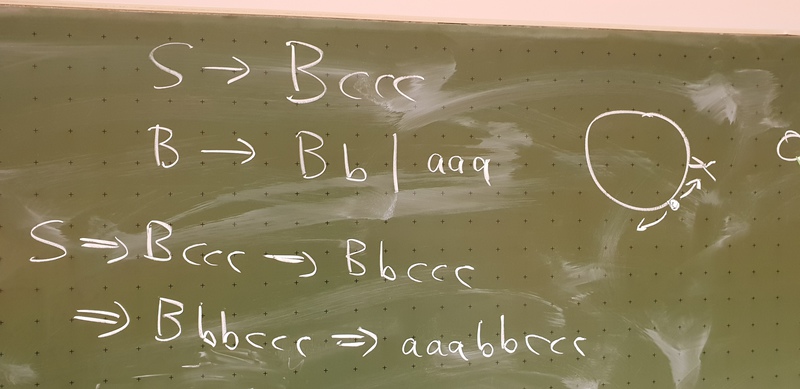 S → Bccc
B → Bb | aaa
S ⇒ Bccc → Bbccc
⇒ Bbbccc ⇒ aaabbccc